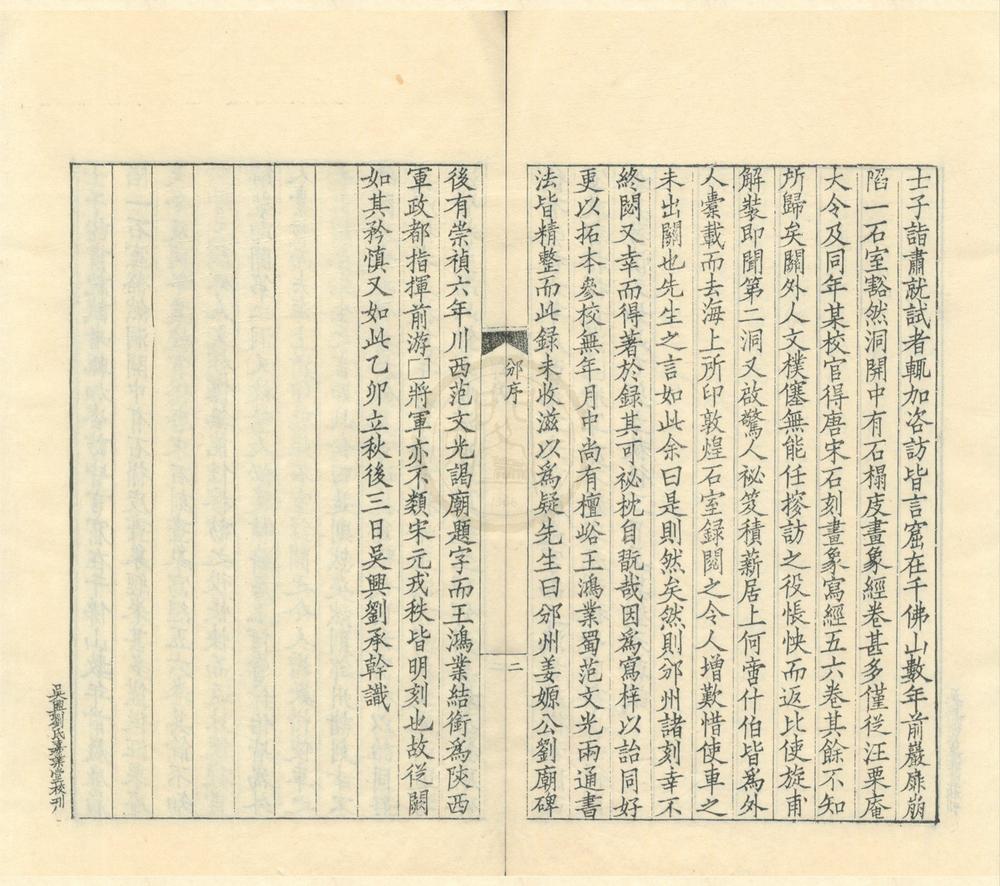 士子詣肅就試者輒加咨訪皆言窟在千佛山數年前巖扉崩
陷一石室豁然洞開中有石榻庋畫象經卷甚多僅從汪栗庵
大令及同年某校官得唐宋石刻畫象寫經五六卷其餘不知
所歸矣關外人文樸僿無能任搜訪之役悵怏而返比使旋甫
解裝即聞第二洞又啟驚人祕笈積薪居上何啻什伯皆為外
人橐載而去海上所印敦煌石室錄閱之令人增歎惜使車之
未出關也先生之言如此余曰是則然矣然則邠州諸刻幸不
終閟又幸而得著於録其可祕枕自翫哉因為寫梓以詒同好
更以拓本參校無年月中尚有檀峪王鴻業蜀范文光兩通書
法皆精整而此録未收滋以為疑先生曰邠州姜嫄公劉廟碑
邠序
二
後有崇禎六年川西范文光謁廟題字而王鴻業結銜為陝西
軍政都指揮前游□將軍亦不類宋元戎秩皆明刻也故從闕
如其矜慎又如此乙卯立秋後三日吳興劉承幹識
吳興劉氏嘉業堂校刊